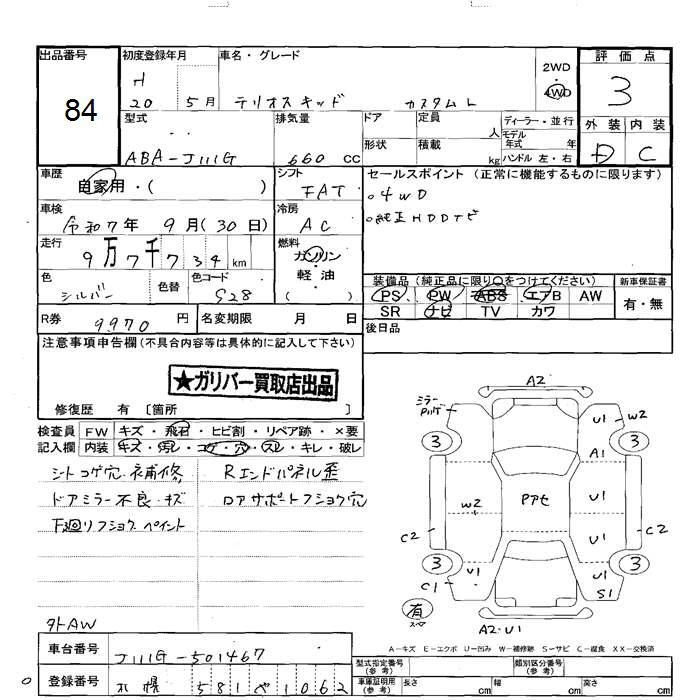 出品番号 初度登録年月 車名・グレード 2WD 評価点
84 H 20 5月 テリオスキッド カスタムL 4WD 3
型式 排気量 ドア 定員 人 ディーラー・並行 外装 内装
ABA-J111G 660 CC 形状 積載 kg モデル年式 年 D C
ハンドル 左・右
車歴 自家用・( ) シフト FAT セールスポイント (正常に機能するものに限ります)
車検 令和7年 9月(30日) 冷房 AC 。4WD
走行 9万7千734km 燃料 ガソリン 軽油 ( ) 。純正HDDナビ
色 シルバー 色替 色コード S28 装備品 (純正品に限り○をつけてください) 新車保証書
PS PW ABS エアB AW 有・無
R券 9970円 名変期限 月 日 SR ナビ TV カワ
注意事項申告欄 (不具合内容等は具体的に記入して下さい) 後日品
★ガリバー買取店出品
修復歴 有 〔箇所 〕
検査員 FW キズ・飛石・ヒビ割・リペア跡・×要
記入欄 内装 キズ・汚レ・コゲ・穴・スレ・キレ・破レ
シートコゲ穴・補修 Rエンドパネル歪
ドアミラー不良・キズ ロアサポートフショク穴
下廻リフショク ペイント
外AW
A2
ミラー
U1 W2
3 3
A1
W2 Pアセ U1
C2 U1 C2
3 3
C1 U1 U1 S1
有
スペア
A2・U1
A-キズ E-エクボ U-凹み W-補修跡 S-サビ C-腐食 XX-交換済
車台番号 J111G-501467
登録番号 札幌 581 や 1062
型式指定番号(参考) 類別区分番号(参考)
車庫証明用(参考) 長さ cm 幅 cm 高さ cm